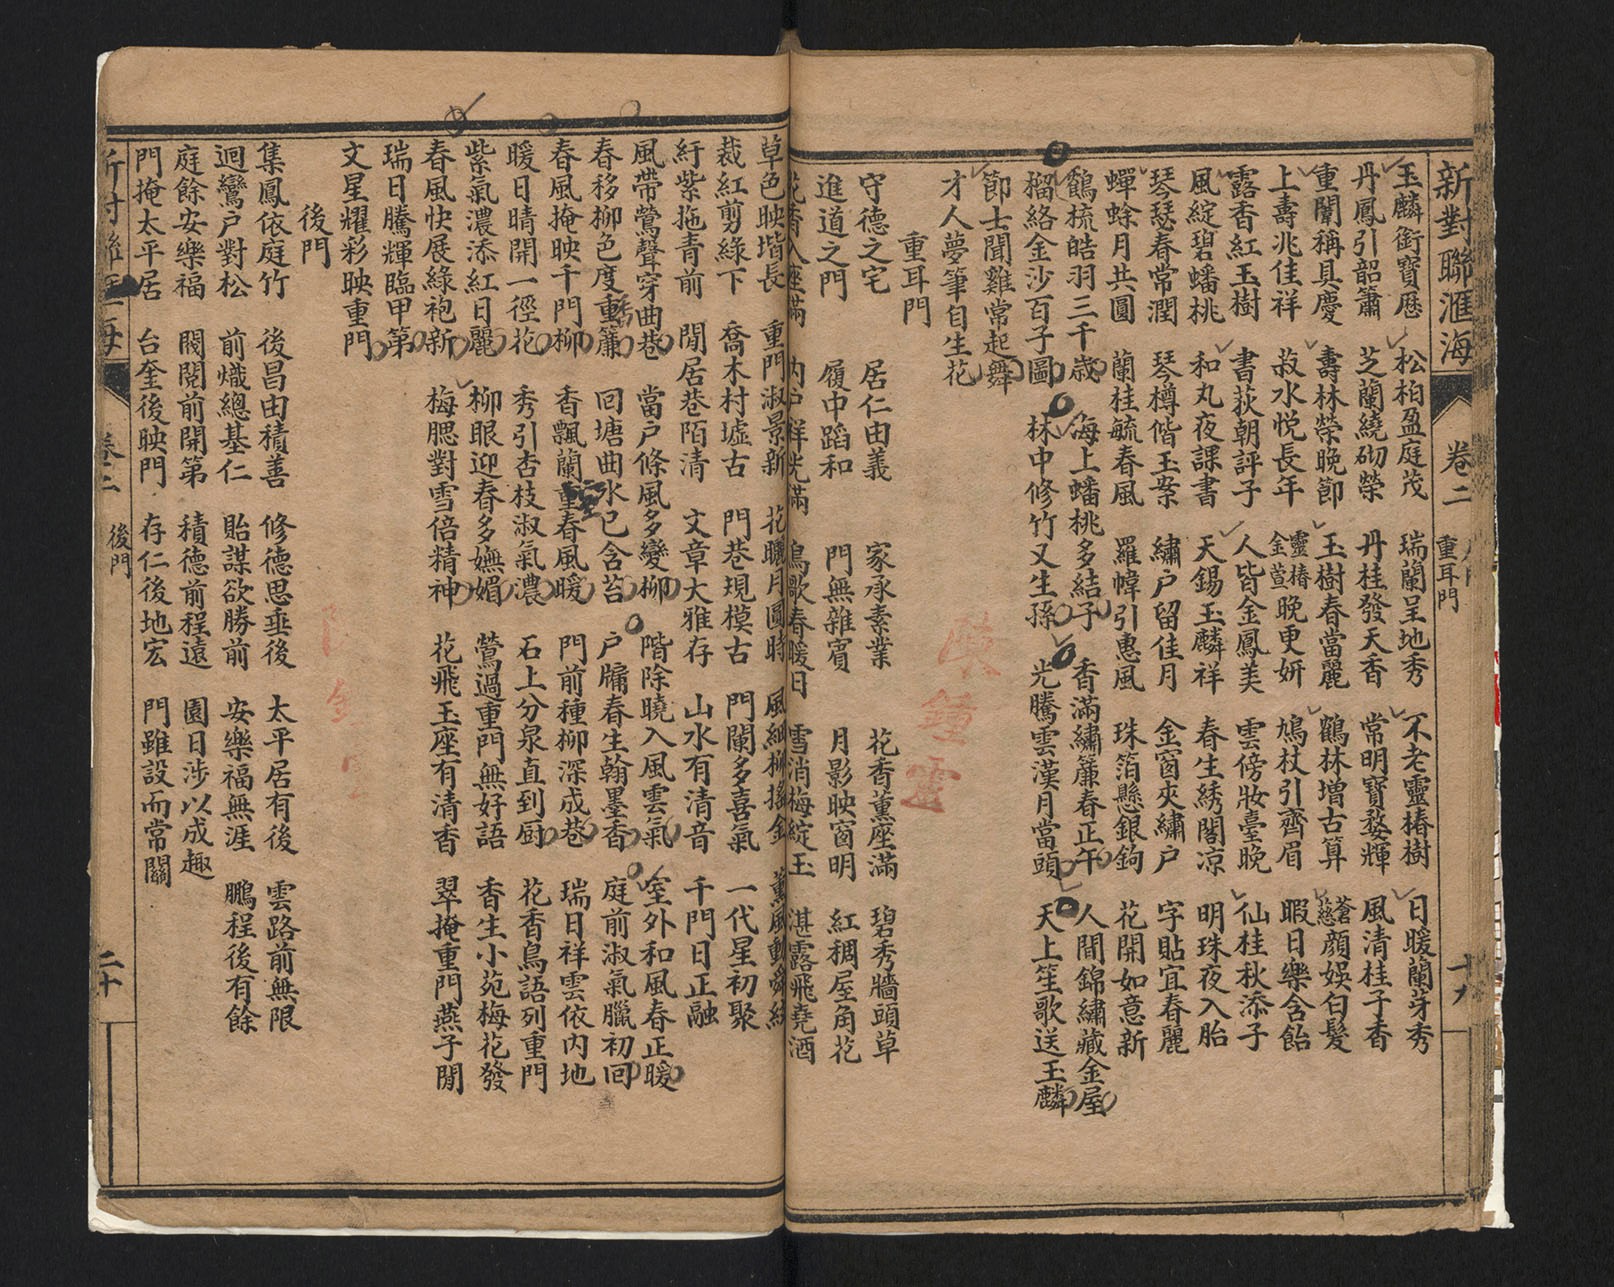 新對聯滙海 卷二 重耳門 十九
玉麟銜寶歷 松柏盈庭茂 瑞蘭呈地秀 不老靈椿樹 日暖蘭芽秀
丹鳳引韶簫 芝蘭繞砌榮 丹桂發天香 常明寶婺輝 風清桂子香
重闈稱具慶 壽林榮晚節 玉樹春當麗 鶴林增古算 蒼顏娛白髮
上壽兆佳祥 菽水悅長年 靈椿金萱晚更妍 鳩杖引齊眉 暇日樂含飴
露香紅玉樹 書荻朝評子 人皆金鳳美 雲傍妝臺晚 仙桂秋添子
風綻碧蟠桃 和丸夜課書 天錫玉麟祥 春生綉閣凉 明珠夜入胎
琴瑟春常潤 琴樽偕玉案 繡户留佳月 金窗夾繡户 字貼宜春麗
蟬蜍月共圓 蘭桂毓春風 羅幃引惠風 珠箔懸銀鉤 花開如意新
鶴梳皓羽三千歲 海上蟠桃多結子 香滿繡簾春正午 人間錦繡藏金屋
榴絡金沙百子圖 林中修竹又生孫 光騰雲漢月當頭 天上笙歌送玉麟
節士聞雞常起舞
才人夢筆自生花
重耳門
守德之宅 居仁由義 家承素業 花香薰座滿 碧秀牆頭草
進道之門 履中蹈和 門無雜賓 月影映窗明 紅稠屋角花
花香入座滿 内户祥光滿 鳥歌春暖日 雪消梅綻玉 湛露飛堯酒
草色映堦長 重門淑景新 花曬月圓時 風細柳搖金 薰風動舜絃
裁紅剪綠下 喬木村墟古 門巷規模古 門闌多喜氣 一代星初聚
紆紫拖青前 閒居巷陌清 文章大雅存 山水有清音 千門日正融
風帶鶯聲穿曲巷 當户條風多變柳 階除曉入風雲氣 室外和風春正暖
春移柳色度重簾 回塘曲水已含苔 户牖春生翰墨香 庭前淑氣臘初回
春風掩映千門柳 香飄蘭重春風暖 門前種柳深成巷 瑞日祥雲依内地
暖日晴開一徑花 秀引杏枝淑氣濃 石上分泉直到厨 花香鳥語列重門
紫氣濃添紅日麗 柳眼迎春多嫵媚 鶯過重門無好語 香生小苑梅花發
春風快展綠袍新 梅腮對雪倍精神 花飛玉座有清香 翠掩重門燕子閒
瑞日騰輝臨甲第
文星耀彩映重門
後門
集鳳依庭竹 後昌由積善 修德思垂後 太平居有後 雲路前無限
迴鸞户對松 前熾總基仁 貽謀欲勝前 安樂福無涯 鵬程後有餘
庭餘安樂福 閥閱前開第 積德前程遠 園日涉以成趣
門掩太平居 台奎後映門 存仁後地宏 門雖設而常關
卷二 後門 二十
陳鐘靈